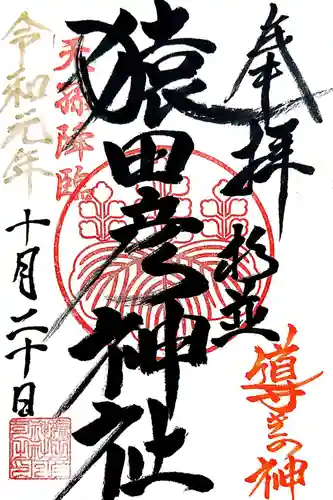 奉拝
杉並
導きの神
猿田彦神社
天孫降臨
令和元年
十月二十日